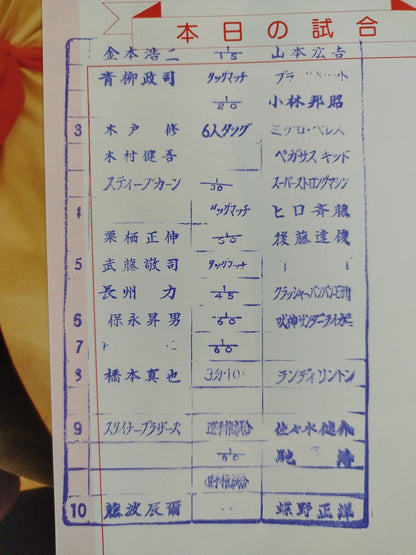 本日の試合
金本浩二 1/15 山本広吉
青柳政司 タッグマッチ
1/20 小林邦昭
3 木戸 修 6人タッグ
木村健吾 ペガサスキッド
スティーブカーン 1/30 スーパーストロングマシン
4 タッグマッチ ヒロ斉藤
栗栖正伸 後藤達俊
5 武藤敬司 タッグマッチ
長州 力 1/45 クラッシャーバンバンビガロ
6 保永昇男 1/60 獣神サンダーライガー
7 1/60
8 橋本真也 ランディソントン
9 スタイナーブラザーズ 選手権試合 佐々木健介
1/60 馳 浩
選手権試合
10 藤波辰爾 蝶野正洋